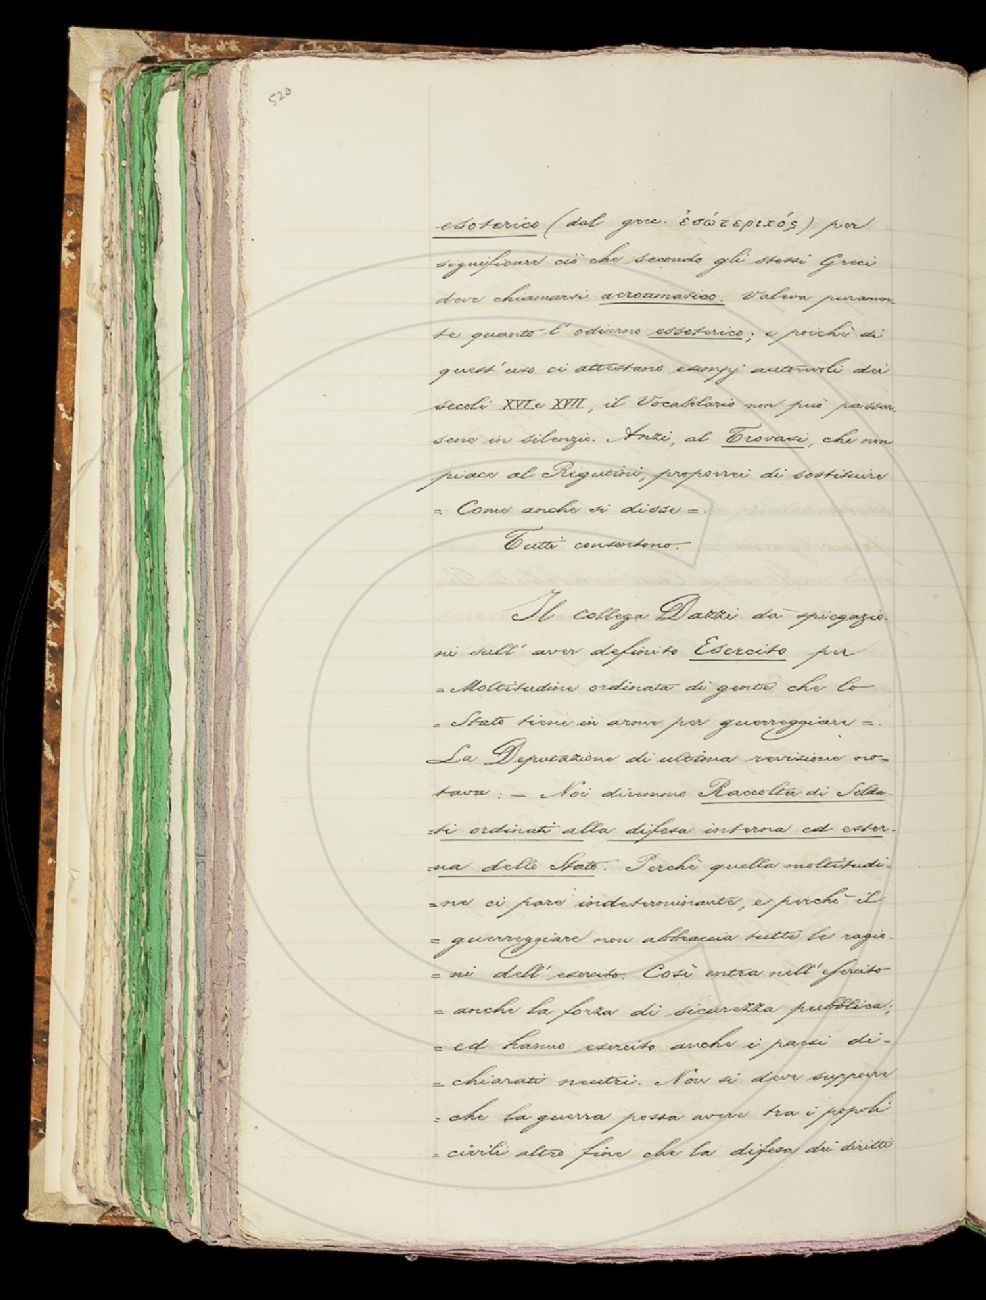 520
esoterico (dal grec. ἐσώτεριχός) per
significare ciò che secondo gli stessi Greci
deve chiamarsi acroamatico. Valeva puramen-
te quanto l'odierno essoterico; e poichè di
quest'uso ci attestano esempj autorevoli dei
secoli XVI e XVII, il Vocabolario non può passar-
sene in silenzio. Anzi, al Trovasi, che non
piace al Rigutini, proporrei di sostituire
= Come anche si disse =.
Tutti consentono.
Il collega Dazzi dà spiegazio-
ni sull'aver definito Esercito per
= Moltitudine ordinata di gente che lo
= Stato tiene in arme per guerreggiare =.
La Deputazione di ultima revisione no-
tava: = Noi diremmo Raccolta di Solda-
=ti ordinati alla difesa interna ed ester-
=na dello Stato. Perchè quella moltitudi-
=ne ci pare indeterminante, e perchè il
= guerreggiare non abbraccia tutte le ragio-
= ni dell'esercito. Così entra nell'esercito
= anche la forza di sicurezza pubblica;
= ed hanno esercito anche i paesi di-
= chiarati neutri. Non si deve supporre
= che la guerra possa avere tra i popoli
= civili altro fine che la difesa dei diritti